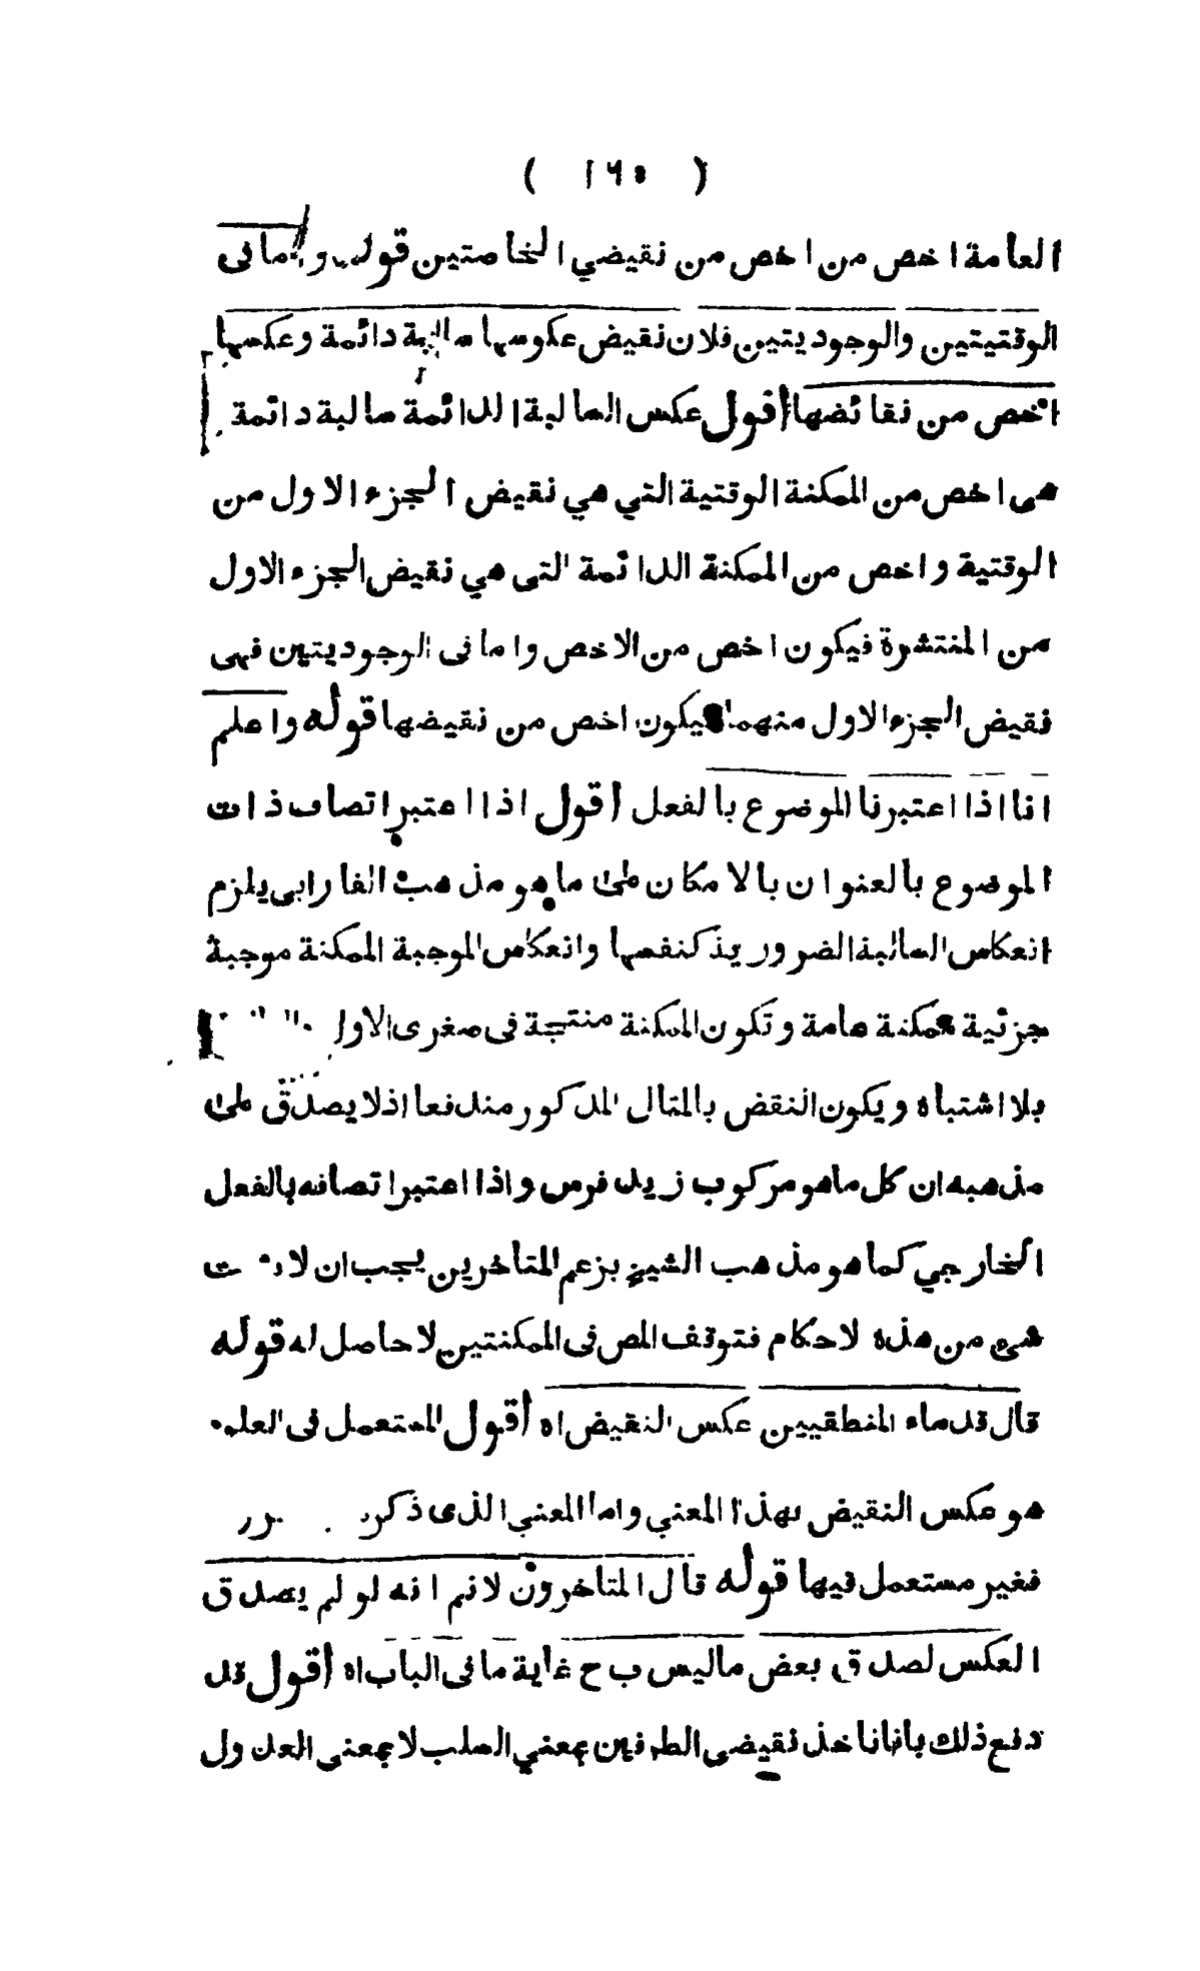 ( ١٦٥ )
العامة اخص من اخص من نقيضي الخاصتين قوله واما فى
الوقتيتين والوجوديتين فلان نقيض عكوسها سالبة دائمة وعكسها
اخص من نقائضها أقول عكس السالبة الدائمة سالبة دائمة
هى اخص من الممكنة الوقتية التي هي نقيض الجزء الاول من
الوقتية واخص من الممكنة الدائمة التى هي نقيض الجزء الاول
من المنتشرة فيكون اخص من الاخص واما فى الوجوديتين فهى
نقيض الجزء الاول منهما فيكون اخص من نقيضها قوله واعلم
انا اذا اعتبرنا الموضوع بالفعل أقول اذا اعتبر اتصاف ذات
الموضوع بالعنوان بالامكان على ما هو مذهب الفارابى يلزم
انعكاس السالبة الضرورية كنفسها وانعكاس الموجبة الممكنة موجبة
جزئية ممكنة عامة وتكون الممكنة منتجة فى صغرى الاول
بلا اشتباه ويكون النقض بالمثال المذكور مندفعا اذلا يصدق على
مذهبه ان كل ماهو مركوب زيد فرس واذا اعتبر اتصافه بالفعل
الخارجي كما هو مذهب الشيخ بزعم المتأخرين يجب ان لا
شىء من هذه لاحكام فتوقف المص فى الممكنتين لا حاصل له قوله
قال قدماء المنطقيين عكس النقيض اه أقول المستعمل فى العلوم
هو عكس النقيض بهذا المعني واما المعني الذى ذكره
فغير مستعمل فيها قوله قال المتاخرون لانم انه لو لم يصدق
العكس لصدق بعض ماليس ب ح غاية ما فى الباب اه أقول قد
دفع ذلك بانا ناخذ نقيضى الطرفين بمعني السلب لا بمعنى العدول